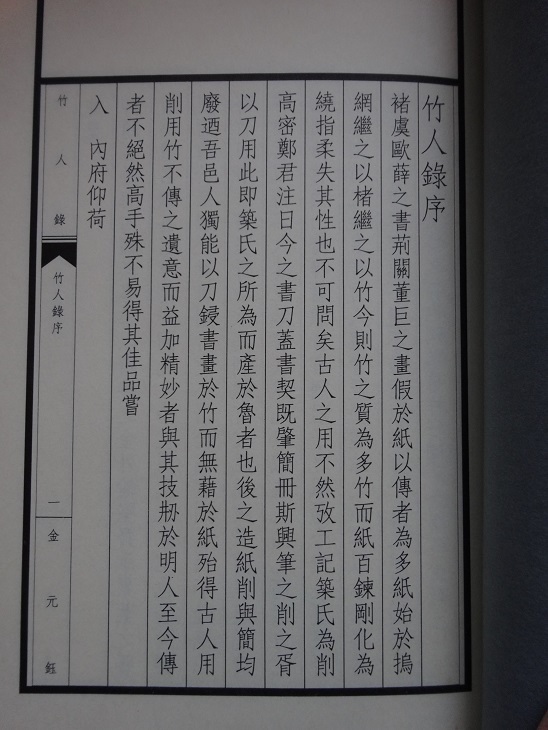 竹人錄序
褚虞歐薛之書荊關董巨之畫假於紙以傳者為多紙始於搗
網繼之以楮繼之以竹今則竹之質為多竹而紙百鍊剛化為
繞指柔失其性也不可問矣古人之用不然攷工記築氏為削
高密鄭君注曰今之書刀蓋書契既肇簡冊斯興筆之削之胥
以刀用此即築氏之所為而產於魯者也後之造紙削與簡均
廢迺吾邑人獨能以刀鋟書畫於竹而無藉於紙殆得古人用
削用竹不傳之遺意而益加精妙者與其技刱於明人至今傳
者不絕然高手殊不易得其佳品嘗
入 內府仰荷
竹人錄
竹人錄序
一
金元鈺